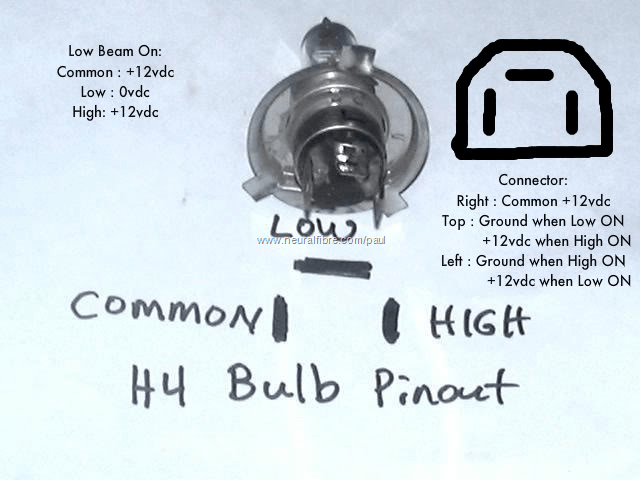 Low Beam On:
Common : +12vdc
Low : 0vdc
High: +12vdc
Connector:
Right : Common +12vdc
Top : Ground when Low ON
+12vdc when High ON
Left : Ground when High ON
+12vdc when Low ON
LOW
www.neuralfibre.com/paul
COMMON HIGH
H4 Bulb Pinout